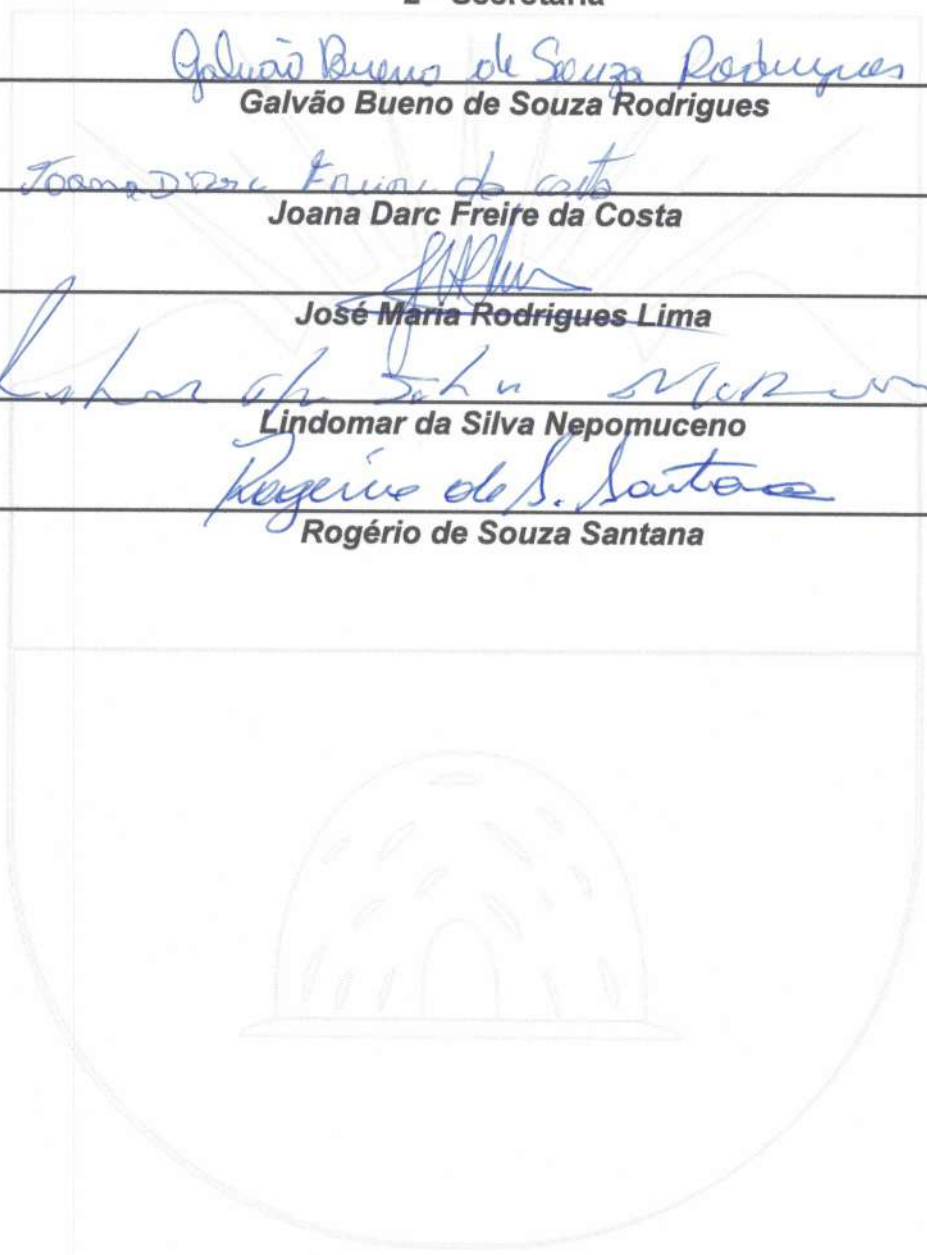 2ª Secretária
Galvão Bueno de Souza Rodrigues
Galvão Bueno de Souza Rodrigues
Joana D'arc Freire da Costa
Joana Darc Freire da Costa
José Maria Rodrigues Lima
Lindomar da Silva Nepomuceno
Rogério de S. Santana
Rogério de Souza Santana